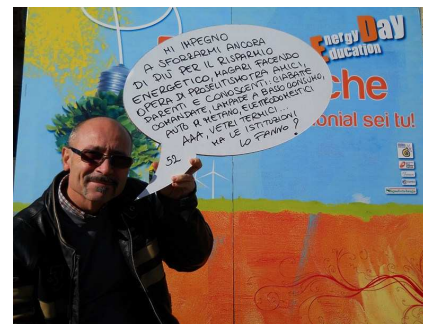 MI IMPEGNO
A SFORZARMI ANCORA
DI PIÙ PER IL RISPARMIO
ENERGETICO, MAGARI FACENDO
OPERA DI PROSELITISMO TRA AMICI,
PARENTI E CONOSCENTI: CIABATTE
COMANDATE, LAMPADE A BASSO CONSUMO,
AUTO A METANO, ELETTRODOMESTICI
AAA, VETRI TERMICI...
MA LE ISTITUZIONI
LO FANNO?
52
Energy Day
Education
che
onial sei tu!